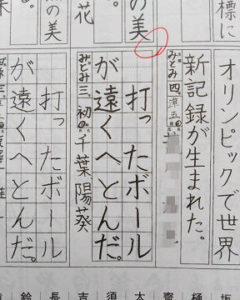 標に
の美
花
の美
オリンピックで世界
新記録が生まれた。
打ったボール
が遠くへとんだ。
みどみ三 初の 千葉陽葵
打ったボール
が遠くへとんだ。
樋
齋
須
吉
長
鈴